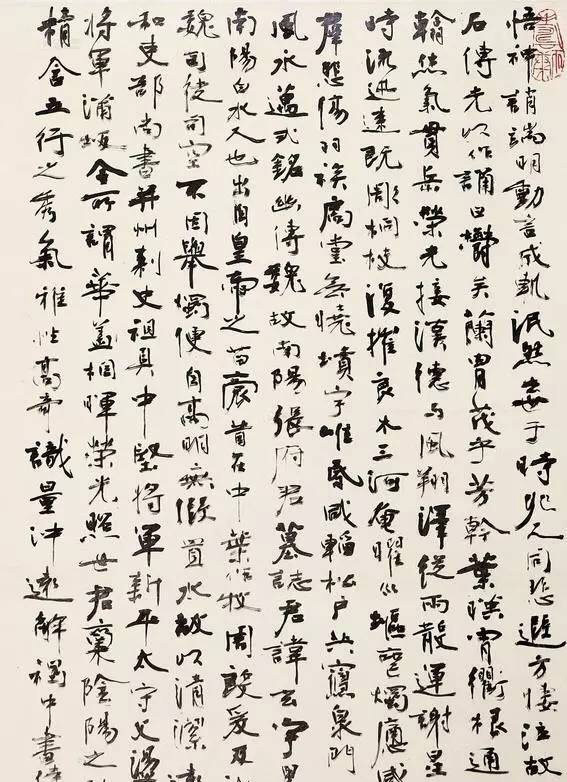 悟神峭端明動言成軌泯然去世于時兆人同悲遐方悽泣故
石傳光以作誦曰欝矣蘭胄茂乎芳幹葉映霄衢根通
翰然氣貫岳榮光接漢德与風翔澤從雨散運謝星
時流迅速既彫桐枝復摧良木三河奄曜巛塸燭痛感
羣悲傷羽族扃堂無曉墳宇唯昏咸韜松戶共寢泉門
風永邁式銘幽傳魏故南陽張府君墓誌君諱玄字黑
南陽白水人也出自皇帝之苗裔昔在中葉作牧周殷爰及
魏司徒司空不因舉燭便自高明無假置水故以清潔遠
和吏部尚書并州刺史祖具中堅將軍新平太守父蕩
將軍蒲坂令所謂華蓋相暉榮光照世君稟陰陽之
精含五行之秀氣雅性高奇識量沖遠解褐中書侍